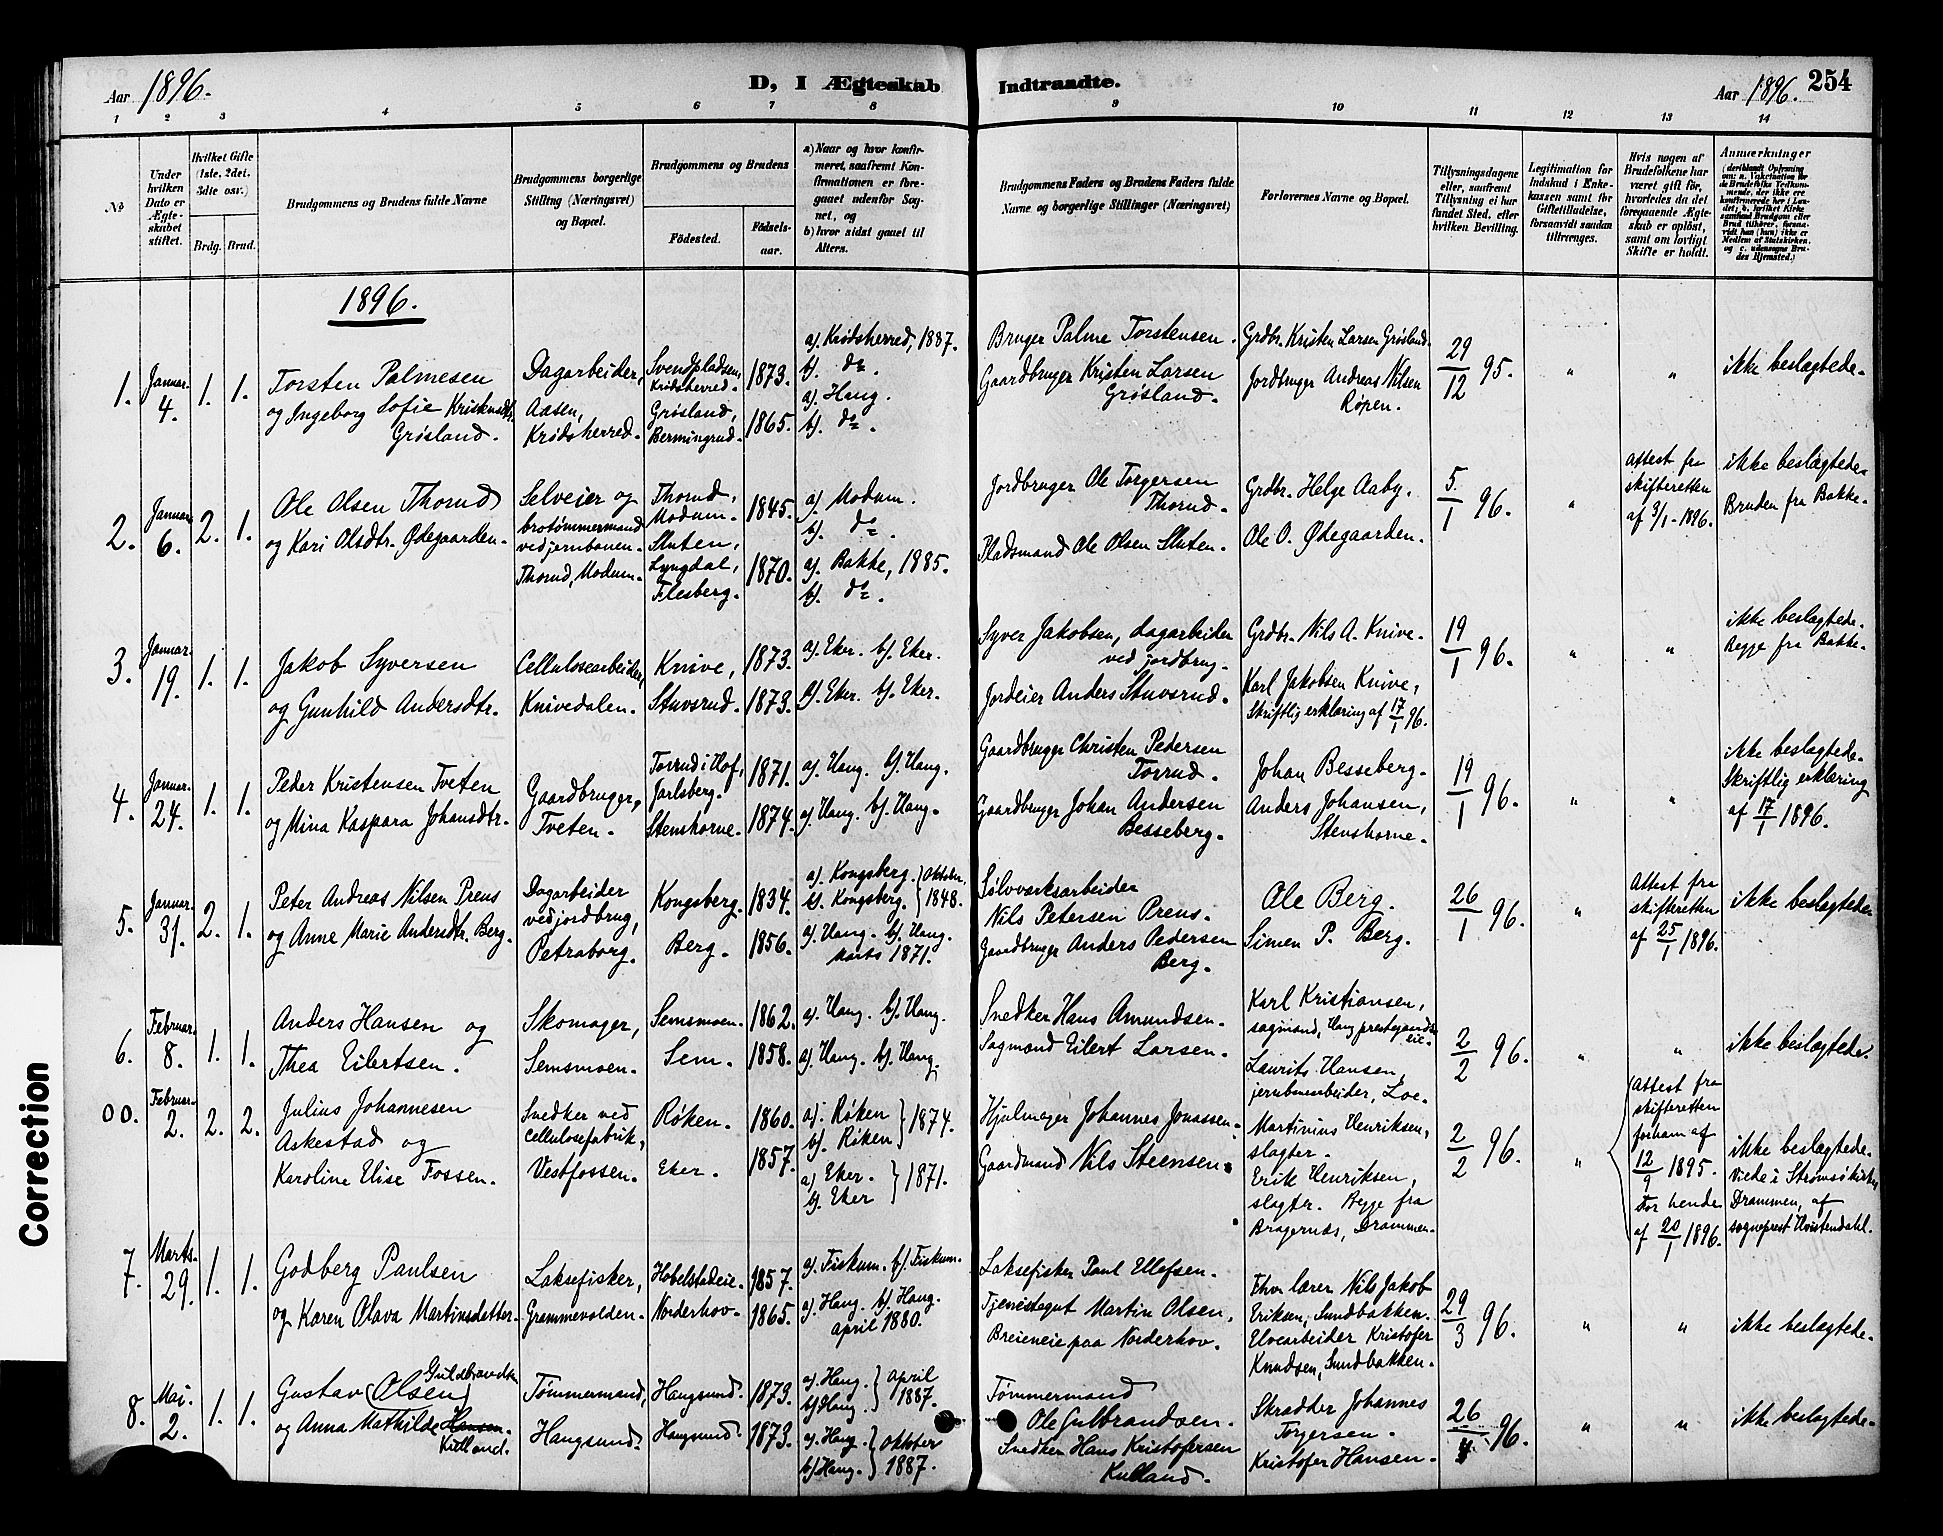 Aar 1896.
D, I Ægteskab Indtraadte.
Aar 1896. 254
1 2 3 4 5 6 7 8 9 10 11 12 13 14
№
Under hvilken Dato er Ægteskabet stiftet.
Hvilket Gifte (1ste, 2det, 3die osv.)
Brdg. Brud.
Brudgommens og Brudens fulde Navne
Brudgommens borgerlige Stilling (Næringsvei) og Bopæl.
Brudgommens og Brudens
Födested.
Födselsaar.
a) Naar og hvor konfirmeret, saafremt Konfirmationen er foregaaet udenfor Sognet, og
b) hvor sidst gaaet til Alters.
Brudgommens Faders og Brudens Faders fulde Navne og borgerlige Stillinger (Næringsvei)
Forlovernes Navne og Bopæl.
Tillysningsdagene eller, saafremt Tillysning ei har fundet Sted, efter hvilken Bevilling.
Legitimation for Indskud i Enkekassen samt for Giftetilladelse, forsaavidt saadan tiltrænges.
Hvis nogen af Brudefolkene har været gift för, hvorledes da det foregaaende Ægteskab er oplöst, samt om lovligt Skifte er holdt.
Anmærkninger
1896.
1. Januar 4. 1. 1.
Torsten Palmesen
og Ingeborg Sofie Kristensdtr.
Grøsland.
Dagarbeider,
Aasen,
Krødsherred.
Svendpladsen,
Krødsherred. 1873.
Grøsland,
Bermingrud. 1865.
a). Krødsherred, 1887.
b). do.
a). Haug.
b). do.
Bruger Palme Torstensen.
Gaardbruger Kristen Larsen
Grøsland.
Grdbr. Kristen Larsen Grøsland.
Jordbruger Andreas Nilsen
Røren.
29/12 95.
" "
ikke beslægtede.
2. Januar 6. 2. 1.
Ole Olsen Thorud
og Kari Olsdtr. Ødegaarden.
Selveier og
brotømmermand
ved jernbanen.
Thorud, Modum.
Thorud,
Modum. 1845.
Sluten,
Lyngdal, 1870.
Flesberg.
a). Modum.
b). do.
a). Bakke, 1885.
b). do.
Jordbruger Ole Torgersen
Thorud.
Pladsmand Ole Olsen Sluten.
Grdbr. Helge Aaby.
Ole O. Ødegaarden.
5./1 96.
"
Attest fra
skifteretten
af 3/1-1896.
ikke beslægtede.
Bruden fra Bakke.
3. Januar 19. 1. 1.
Jakob Syversen
og Gunhild Andersdtr.
Cellulosearbeider,
Knivedalen.
Knive, 1873.
Stuvsrud. 1873.
a). Eker. b). Eker.
a). Eker. b). Eker.
Syver Jakobsen, dagarbeider
ved jordbrug.
Jordeier Anders Stuvsrud.
Grdbr. Nils A. Knive.
Karl Jakobsen Knive,
Skriftlig erklæring af 17/1 96.
19/1 96.
" "
ikke beslægtede.
Begge fra Bakke.
4. Januar 24. 1. 1.
Peder Kristensen Tveten
og Mina Kaspara Johansdtr.
Gaardbruger,
Tveten.
Torrud i Hof,
Jarlsberg. 1871.
Stenshorne. 1874.
a). Haug. b). Haug.
a). Haug. b). Haug.
Gaardbruger Christen Pedersen
Torrud.
Gaardbruger Johan Andersen
Besseberg.
Johan Besseberg.
Anders Johansen,
Stenshorne.
19/1 96.
" "
ikke beslægtede.
Skriftlig erklæring
af 17/1 1896.
5. Januar 31. 2. 1.
Peter Andreas Nilsen Prens
og Anne Marie Andersdtr. Berg.
Dagarbeider
ved jordbrug,
Petraborg.
Kongsberg. 1834.
Berg. 1856.
a). Kongsberg. } Oktober
b). Kongsberg. } 1848.
a). Haug. b). Haug.
Marts 1871.
Sølvværksarbeider
Nils Petersen Prens.
Gaardbruger Anders Pedersen
Berg.
Ole Berg.
Simen P. Berg.
26/1 96.
"
Attest fra
skifteretten
af 25/1 1896.
ikke beslægtede.
6. Februar 8. 1. 1.
Anders Hansen og
Thea Eilertsen.
Skomager,
Semsmoen.
Semsmoen. 1862.
Sem. 1858.
a). Haug. b). Haug.
a). Haug. b). Haug.
Snedker Hans Amundsen.
Sagmand Eilert Larsen.
Karl Kristiansen,
sagmand, Haug prestegaards
eie.
Laurits Hansen,
jernbanearbeider, Loe.
2/2 96.
" "
ikke beslægtede.
00. Februar 2. 2. 2.
Julius Johannesen
Askestad og
Karoline Elise Fossen.
Snedker ved
Cellulosefabrik,
Vestfossen.
Røken. 1860.
Eker. 1857.
a). Røken } 1874.
b). Røken
a) Eker. } 1871.
b). Eker
Hjulmager Johannes Jonassen.
Gaardmand Nils Steensen.
Martinius Henriksen,
slagter.
Erik Henriksen,
slagter. Begge fra
Bragernæs, Drammen.
2/2 96.
"
Attest fra
skifteretten
for ham af
12/9 1895.
For hende
af 20/1 1896.
ikke beslægtede.
Viede i Strømsø kirke,
Drammen, af
sogneprest Hvistendahl.
7. Marts 29. 1. 1.
Godberg Paulsen
og Karen Olava Martinsdatter.
Laksefisker,
Grammevolden.
Hobelstadeie. 1857.
Norderhov. 1865.
a). Fiskum. b). Fiskum.
a). Haug. b). Haug.
april 1880.
Laksefisker Paul Ellefsen.
Tjenestegut Martin Olsen,
Breieneie paa Norderhov.
Fhv. lærer Nils Jakob
Eriksen, Sundbakken.
Elvearbeider Kristofer
Knudsen, Sundbakken.
29/3 96.
" "
ikke beslægtede.
8. Mai 2. 1. 1.
Guldbrandsen
Gustav (Olsen)
og Anna Mathilde Hansen.
Kulland.
Tømmermand,
Haugsund.
Haugsund. 1873.
Haugsund. 1873.
a). Haug. } april
b). Haug. } 1887.
a). Haug. } Oktober
b). Haug. } 1887.
Tømmermand
Ole Gulbrandsen.
Snedker Hans Kristofersen
Kulland.
Skrædder Johannes
Torgersen.
Kristofer Hansen.
26/4 96.
" "
ikke beslægtede.
Correction